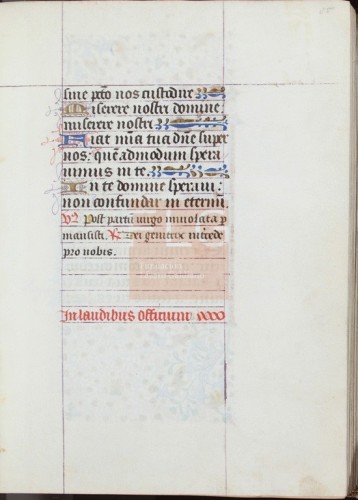 sine pcc̄o nos custodire
Miserere nostri domine:
miserere nostri
Fiat mīa tua dn̄e super
nos: quē admodum spera
uimus in te.
In te domine speraui:
non confundar in eternū.
V̄. Post partū uirgo inuiolata p
mansisti. R̄. Dei genitrix intercede
pro nobis.
In laudibus officium